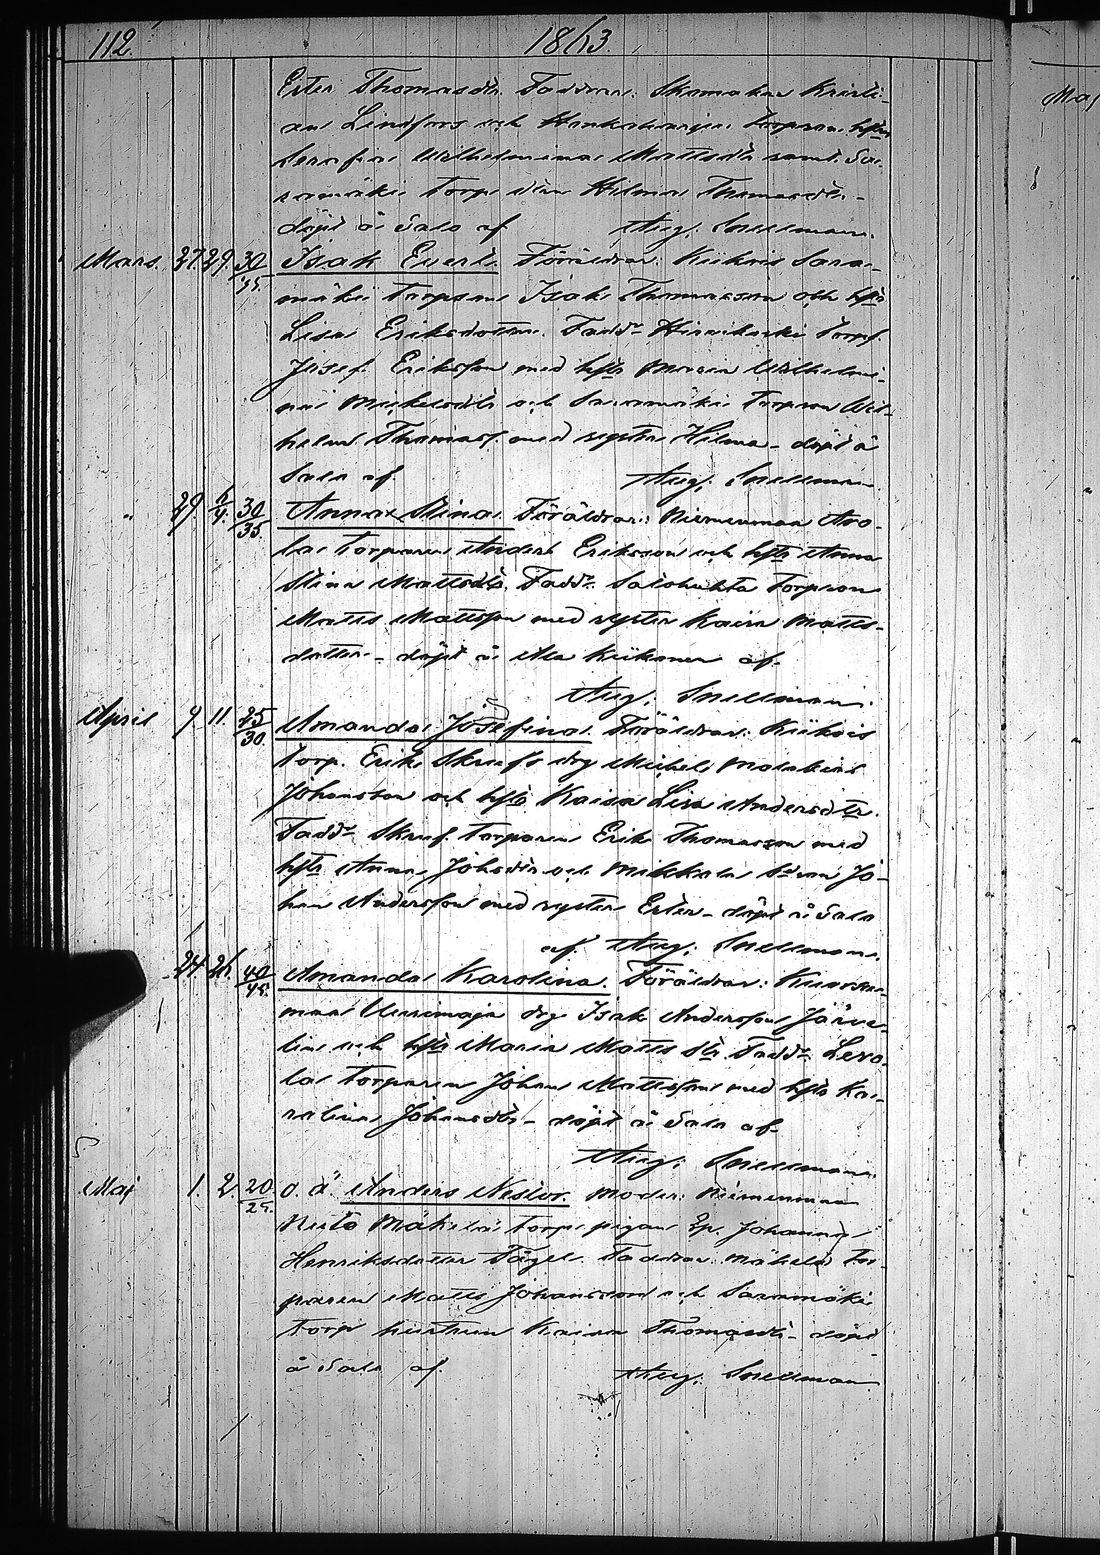 112. 1863.
Ester Thomasdr. Faddrar: Skomakar Kristi-
an Lindfors och Torparen hstr
Serafia Wilhelmina Mattsdr samt Sa-
ramäki Torp Hilma Thomasdr. -
döpt å Salo af Aug. Snellman.
Mars. 27. 29. 30/35. Isak Evert. Föräldrar: Kiikois Sara-
mäki Torparen Isak Thomasson och hstr
Lisa Eriksdotter. Faddr Hirvikoski Torp.
Josef Eriksson med hstr Maria Wilhelmi-
na Mickelsdr och Saramäki Torparen Wil-
helm Thomass. med syster Hilma - döpt å
Salo af. Aug. Snellman.
" 29 5/4. 30/35 Anna Stina. Föräldrar: Niemenmaa Aro-
la Torparen Anders Eriksson och hstr Anna
Stina Mattsdr. Faddr Torparen
Matts Mattsson med syster Kaisa Matts-
dotter - döpt å Ala Kiikonen af.
Aug. Snellman.
April 9 11. 25/30. Amanda Josefina. Föräldrar: Kiikois
Torp. Erik Skrufs drg Michel
Johansson och hstr Kaisa Lisa Andersdtr.
Faddr Skruf Torparen Erik Thomasson med
hstr Anna Johsdr och Mikkola Sonen Jo-
han Andersson med syster Ester - döpt å Salo
af Aug. Snellman.
24. 26. 40/45. Amanda Karolina. Föräldrar:
maa Uusimaja drg Isak Andersson Järve-
lin och hstr Maria Matts dr. Faddr. Levo-
la Torparen Johan Mattsson med hstr Ka-
rolina Johansdr - döpt å Salo af
Aug. Snellman.
Maj 1. 2. 20/25. o. ä. Anders Nestor. Moder: Niemenmaa
Mäkelä Torps pigan Ep. Johanna
Henriksdotter Fågel. Faddrar: Mäkelä To-
rparen Matts Johansson och Saramäki
Torp hustrun Kaisa Thomasdr - döpt
å Salo af. Aug. Snellman
Maj